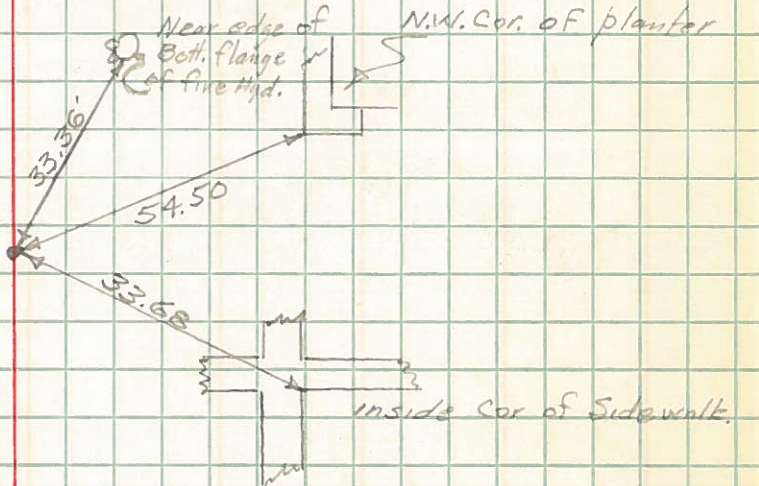 Near edge of
Bott. flange
of fire Hyd.
N.W. Cor. of planter
33.36'
54.50
33.68
inside Cor of Sidewalk.